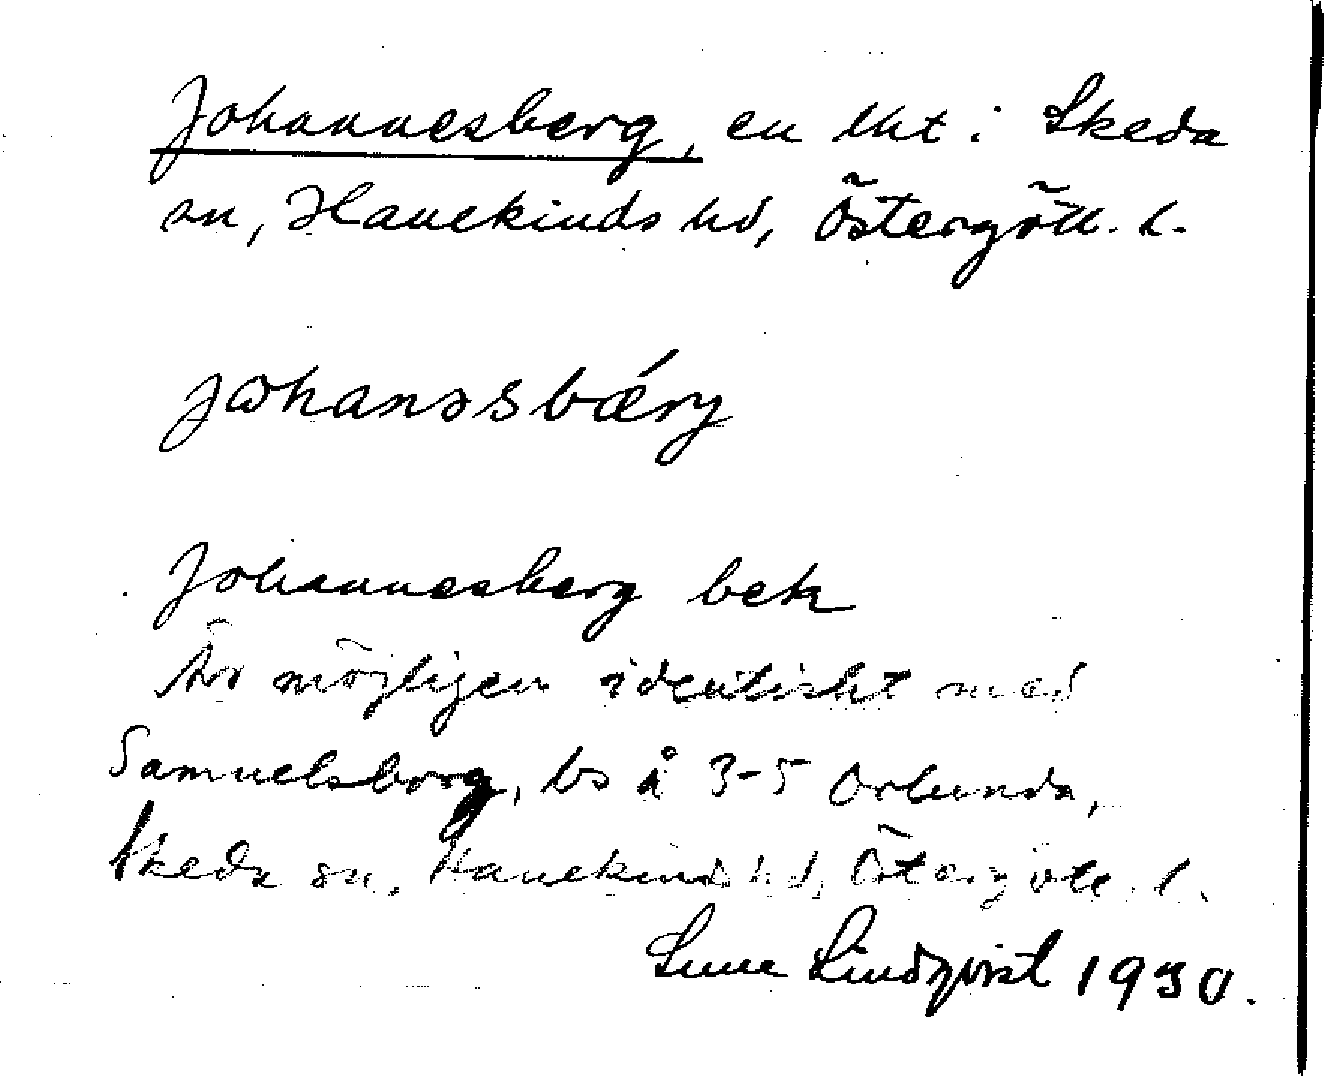 Johannesberg, en lht i Skeda
sn, Hanekinds hd, Östergötl. l.
johanəsbǽrj
Johannesberg bek
Är möjligen identiskt med
Samuelsborg, bs å 3-5 Orlunda,
Skeda sn, Hanekinds hd, Östergötl. l.
Sune Lindqvist 1930.